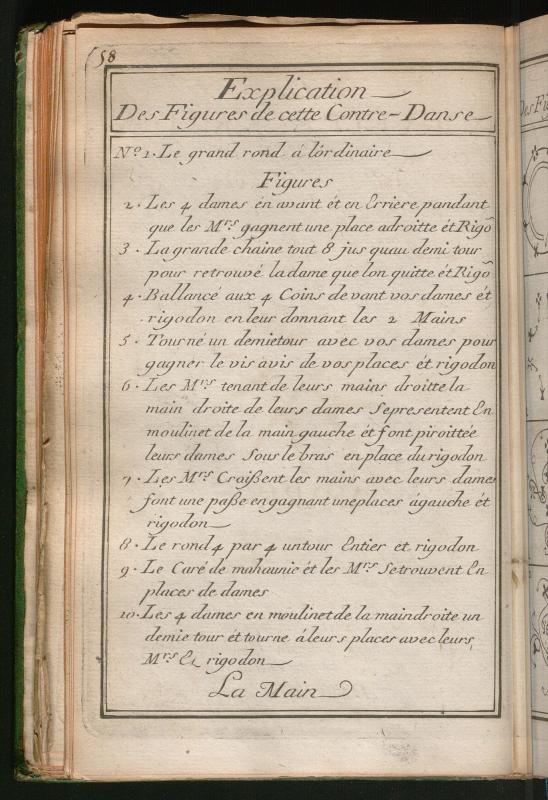 (58
Explication
Des Figures de cette Contre-Danse
No. 1. Le grand rond á lórdinaire
Figures
2. Les 4 dames én avant ét en Erriere pandant
que les Mrs gagnent une place adroitte ét Rigo
3. La grande chaine tout 8 jus quau demi tour
pour retrouvé la dame que lon quitte ét Rigo
4. Ballancé aux 4 Coins de vant vos dames ét
rigodon en leur donnant les 2 Mains
5. Tourné un demie tour avec vos dames pour
gagner le vis avis de vos places ét rigodon
6. Les Mrs tenant de leurs mains droitte la
main droite de leurs dames Sepresentent En
moulinet de la main gauche ét font piroittée
leurs dames Sous le bras en place du rigodon
7. Les Mrs Craißent les mains avec leurs dames
font une paße en gagnant une places ágauche ét
rigodon
8. Le rond 4 par 4 un tour Entier et rigodon
9. Le Caré de mahaunie ét les Mrs Setrouvent En
places de dames
10. Les 4 dames en moulinet de la main droite un
demie tour ét tourne áleurs places avec leurs
Mrs Et rigodon
La Main
Des Fig